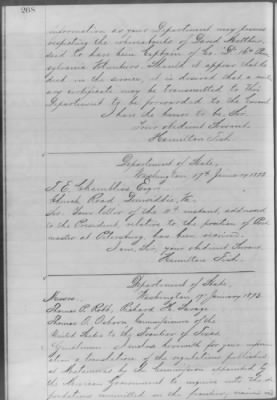 208
information as your Department may possess
respecting the whereabouts of Daniel
died to have been Captain of Co. "D" 16th Penn
sylvania Volunteers. Should it appear that he
died in the service, it is desired that a mili
ary certificate may be transmitted to this
Department to be forwarded to the
I have the honor to be, Sir
Your obedient Servant
Hamilton Fish
Department of State,
Washington 17th January 1873.
T. E. Chambliss Esqre
Church Road Dinwiddie, Va.
Sir. Your letter of the instant, addressed
to the President, relative to the position of Post
master at Petersburg has been received.
I am, Sir, your obedient Servant
Hamilton Fish.
Department of State,
Washington, 17 January 1873.
Messrs
Thomas P. Robb, Richard H. Savage
Thomas O. Osborn Commissioners of the
United States to the frontier of Texas
Gentlemen: I enclose herewith for your inform
ation a translation of the regulations published
at Matamoros by the Commission appointed by
the Mexican Government to inquire into the de
predations committed on the frontier,